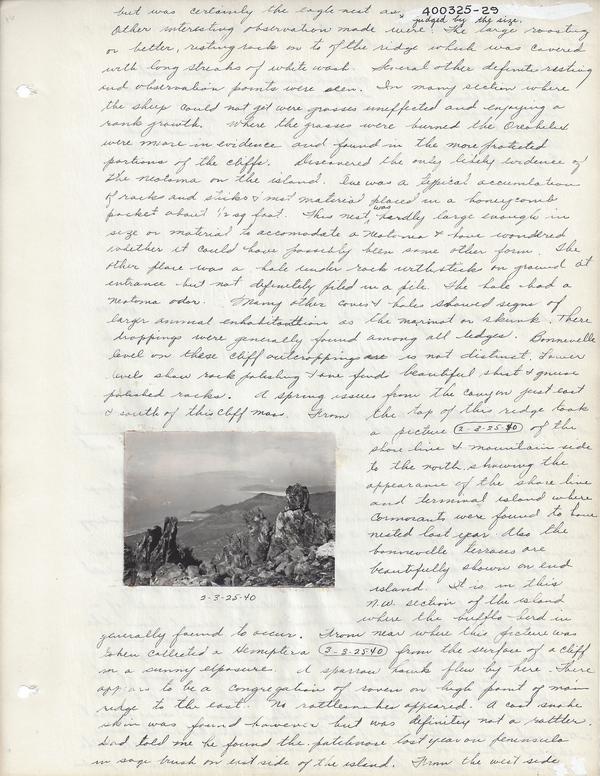 400325-29
but was certainly the eagle nest as judged by the size.
Other interesting observation made were: The large roosting
or better, resting rock on to of the ridge which was covered
with long streaks of white wash. Several other definite resting
and observation points were seen. In many section where
the sheep could not get were grasses uneffected and enjoying a
rank growth. Where the grasses were burned the Oreohelix
were more in evidence and found in the more protected
portions of the cliffs. Discovered the only likely evidence of
the neotoma on the island. One was a typical accumlation
of rocks and sticks & nest material placed in a honeycomb
pocket about 1½ sq feet. This nest was hardly large enough in
size or material to accomodate a Neotoma & have wondered
whether it could have possibly been some other form. The
other place was a hole under rock with sticks on ground at
entrance but not definitely piled in a pile. The hole had a
neotoma odor. Many other caves & holes showed signs of
larger animal enhabitation as the marmot or skunk. There
droppings were generally found among all ledges. Bonneville
level on these cliff outcroppings is not distinct. Lower
levels show rock polishing & one finds beautiful shist & gneiss
polished rocks. A spring issues from the canyon just east
& south of this cliff mass. From the top of this ridge took
a picture 2-3-25-40 of the
shore line & mountain side
to the north showing the
appearance of the shore line
and terminal island where
Cormorants were found to have
nested last year. Also the
bonneville terraces are
beautifully shown on end
island. It is in this
N.W. section of the island
where the buffalo herd in
2-3-25-40
generally found to occur. From near where this picture was
taken collected a Hemiptera 3-3-25-40 from the surface of a cliff
in a sunny exposures. A sparrow hawk flew by here. There
appears to be a congregation of raven on high point of main
ridge to the east. No rattlesnakes appeared. A cast snake
skin was found however but was definitely not a rattler.
told me he found the patchnose last year on peninsula
in sage brush on east side of the island. From the west side